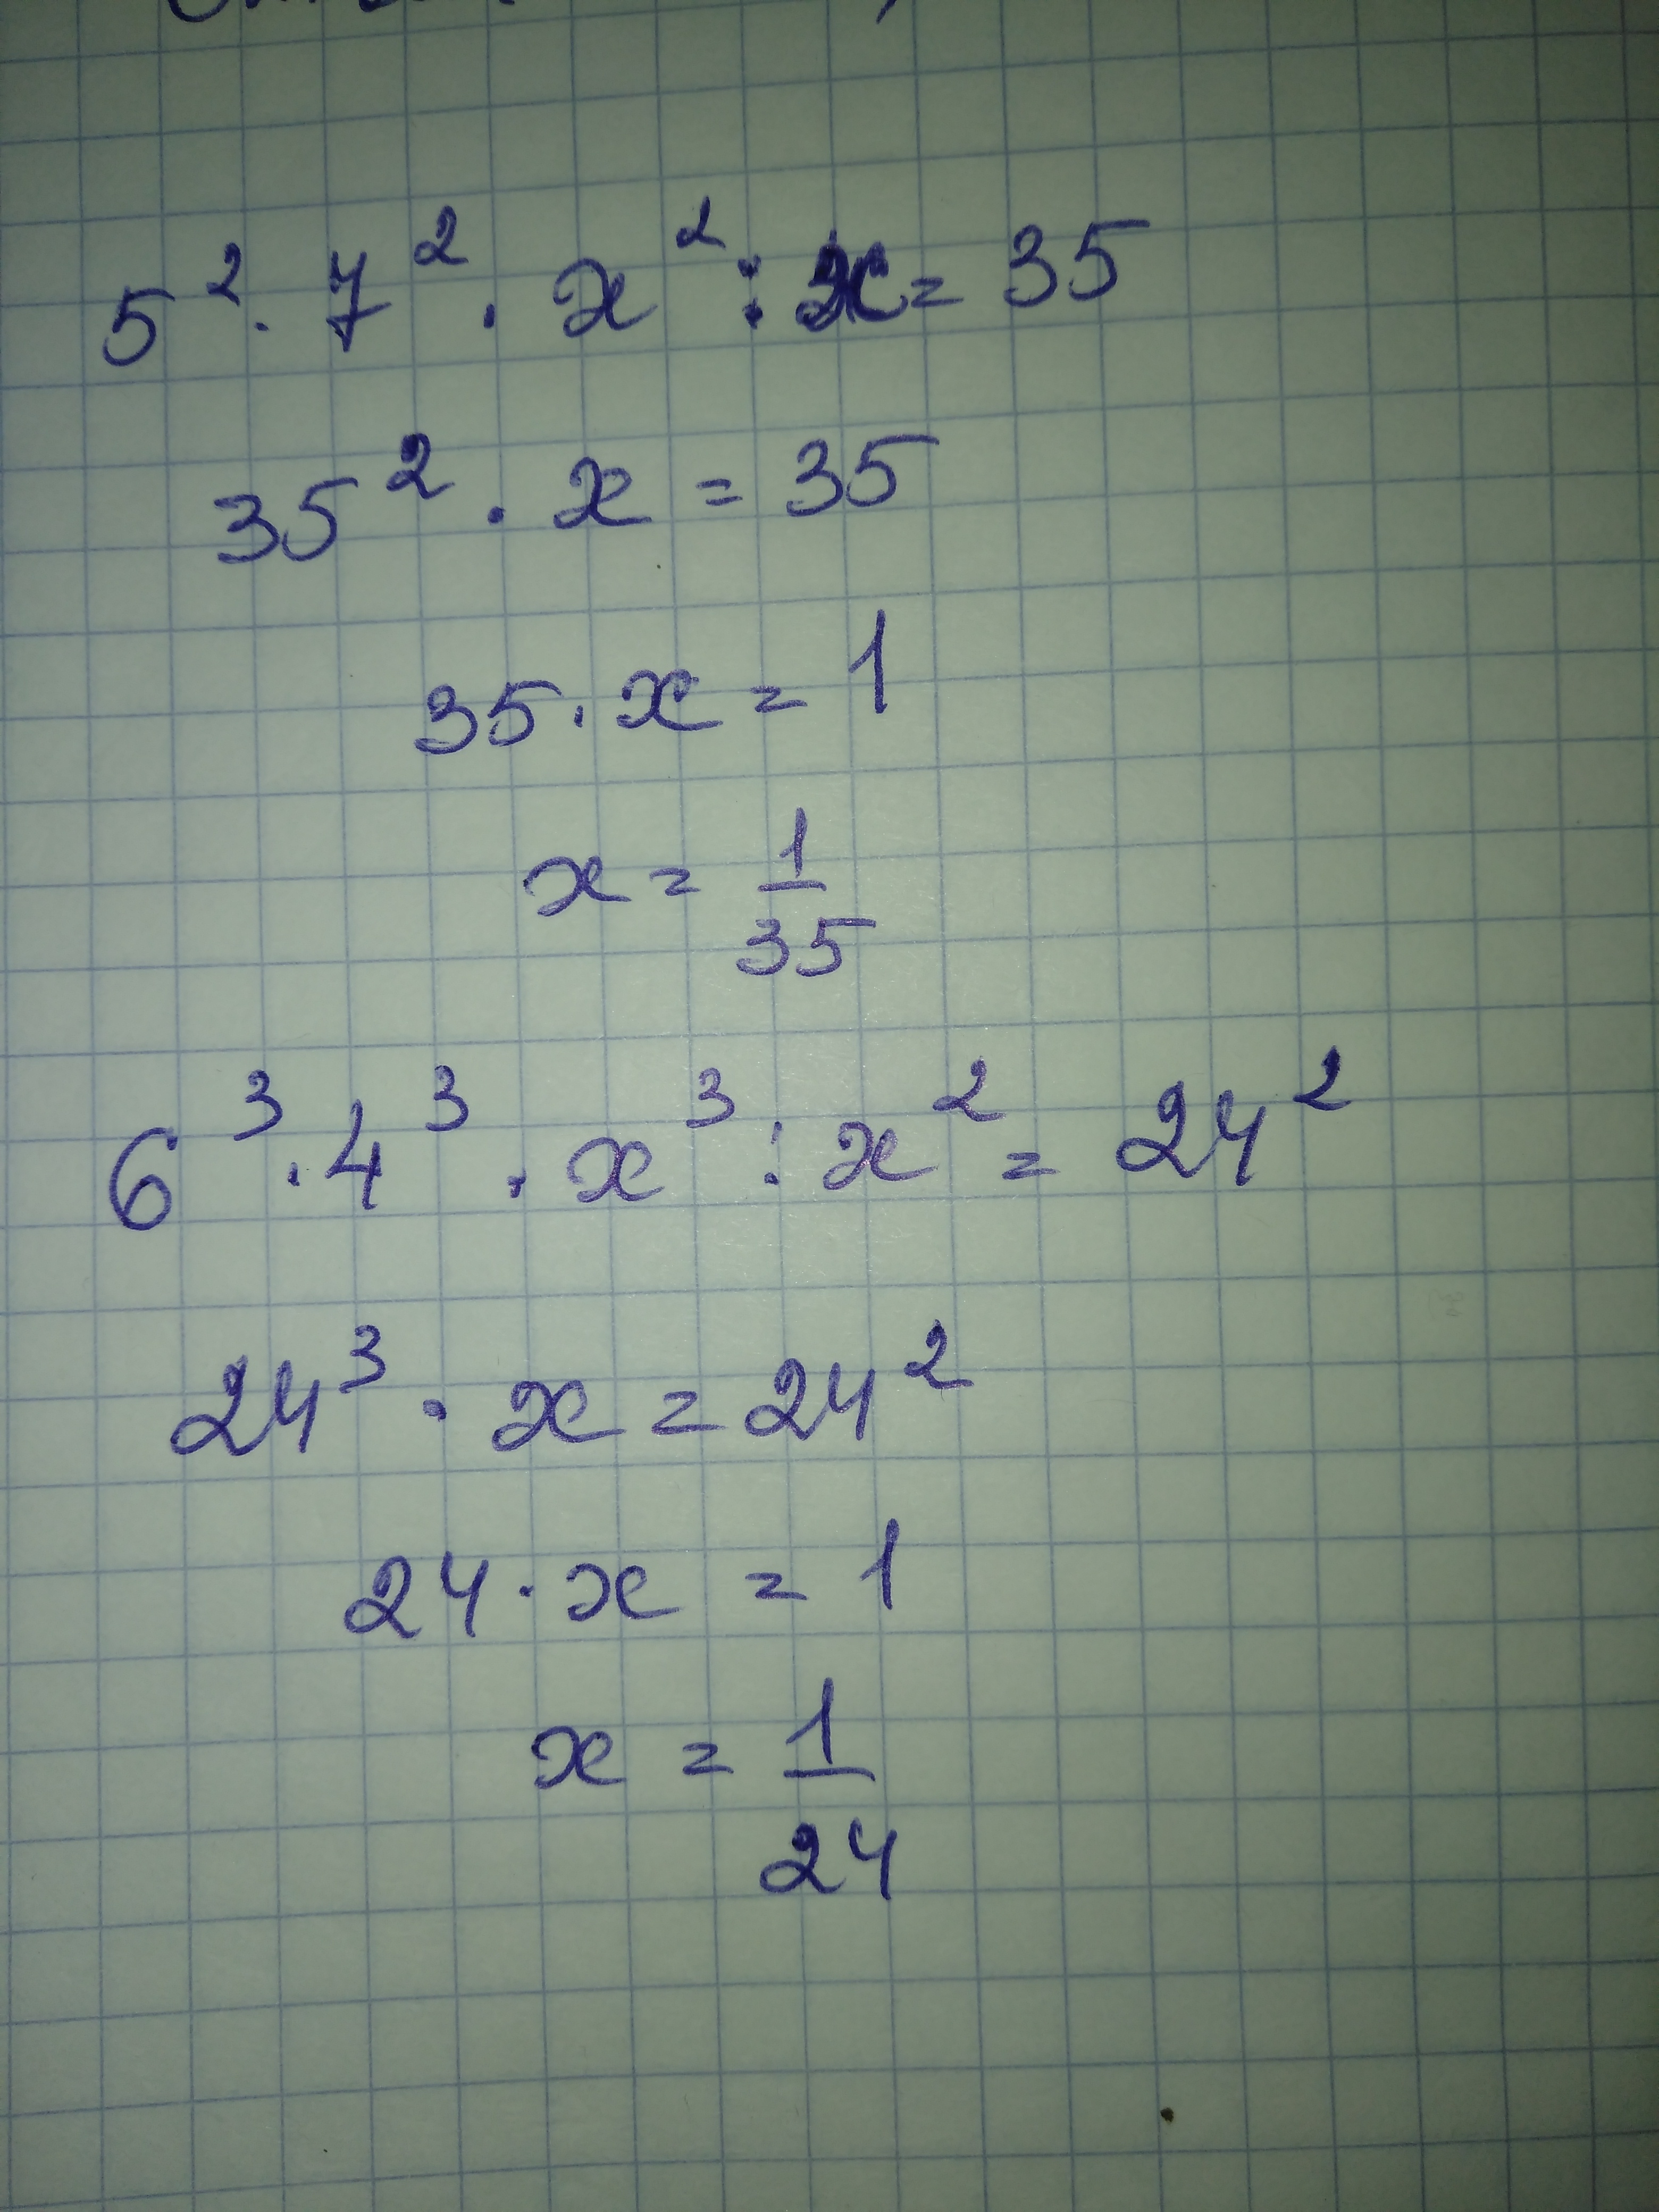 5² · 7² · x² : x = 35
35² · x = 35
35 · x = 1
x = 1/35
6³ · 4³ · x³ : x² = 24²
24³ · x = 24²
24 · x = 1
x = 1/24